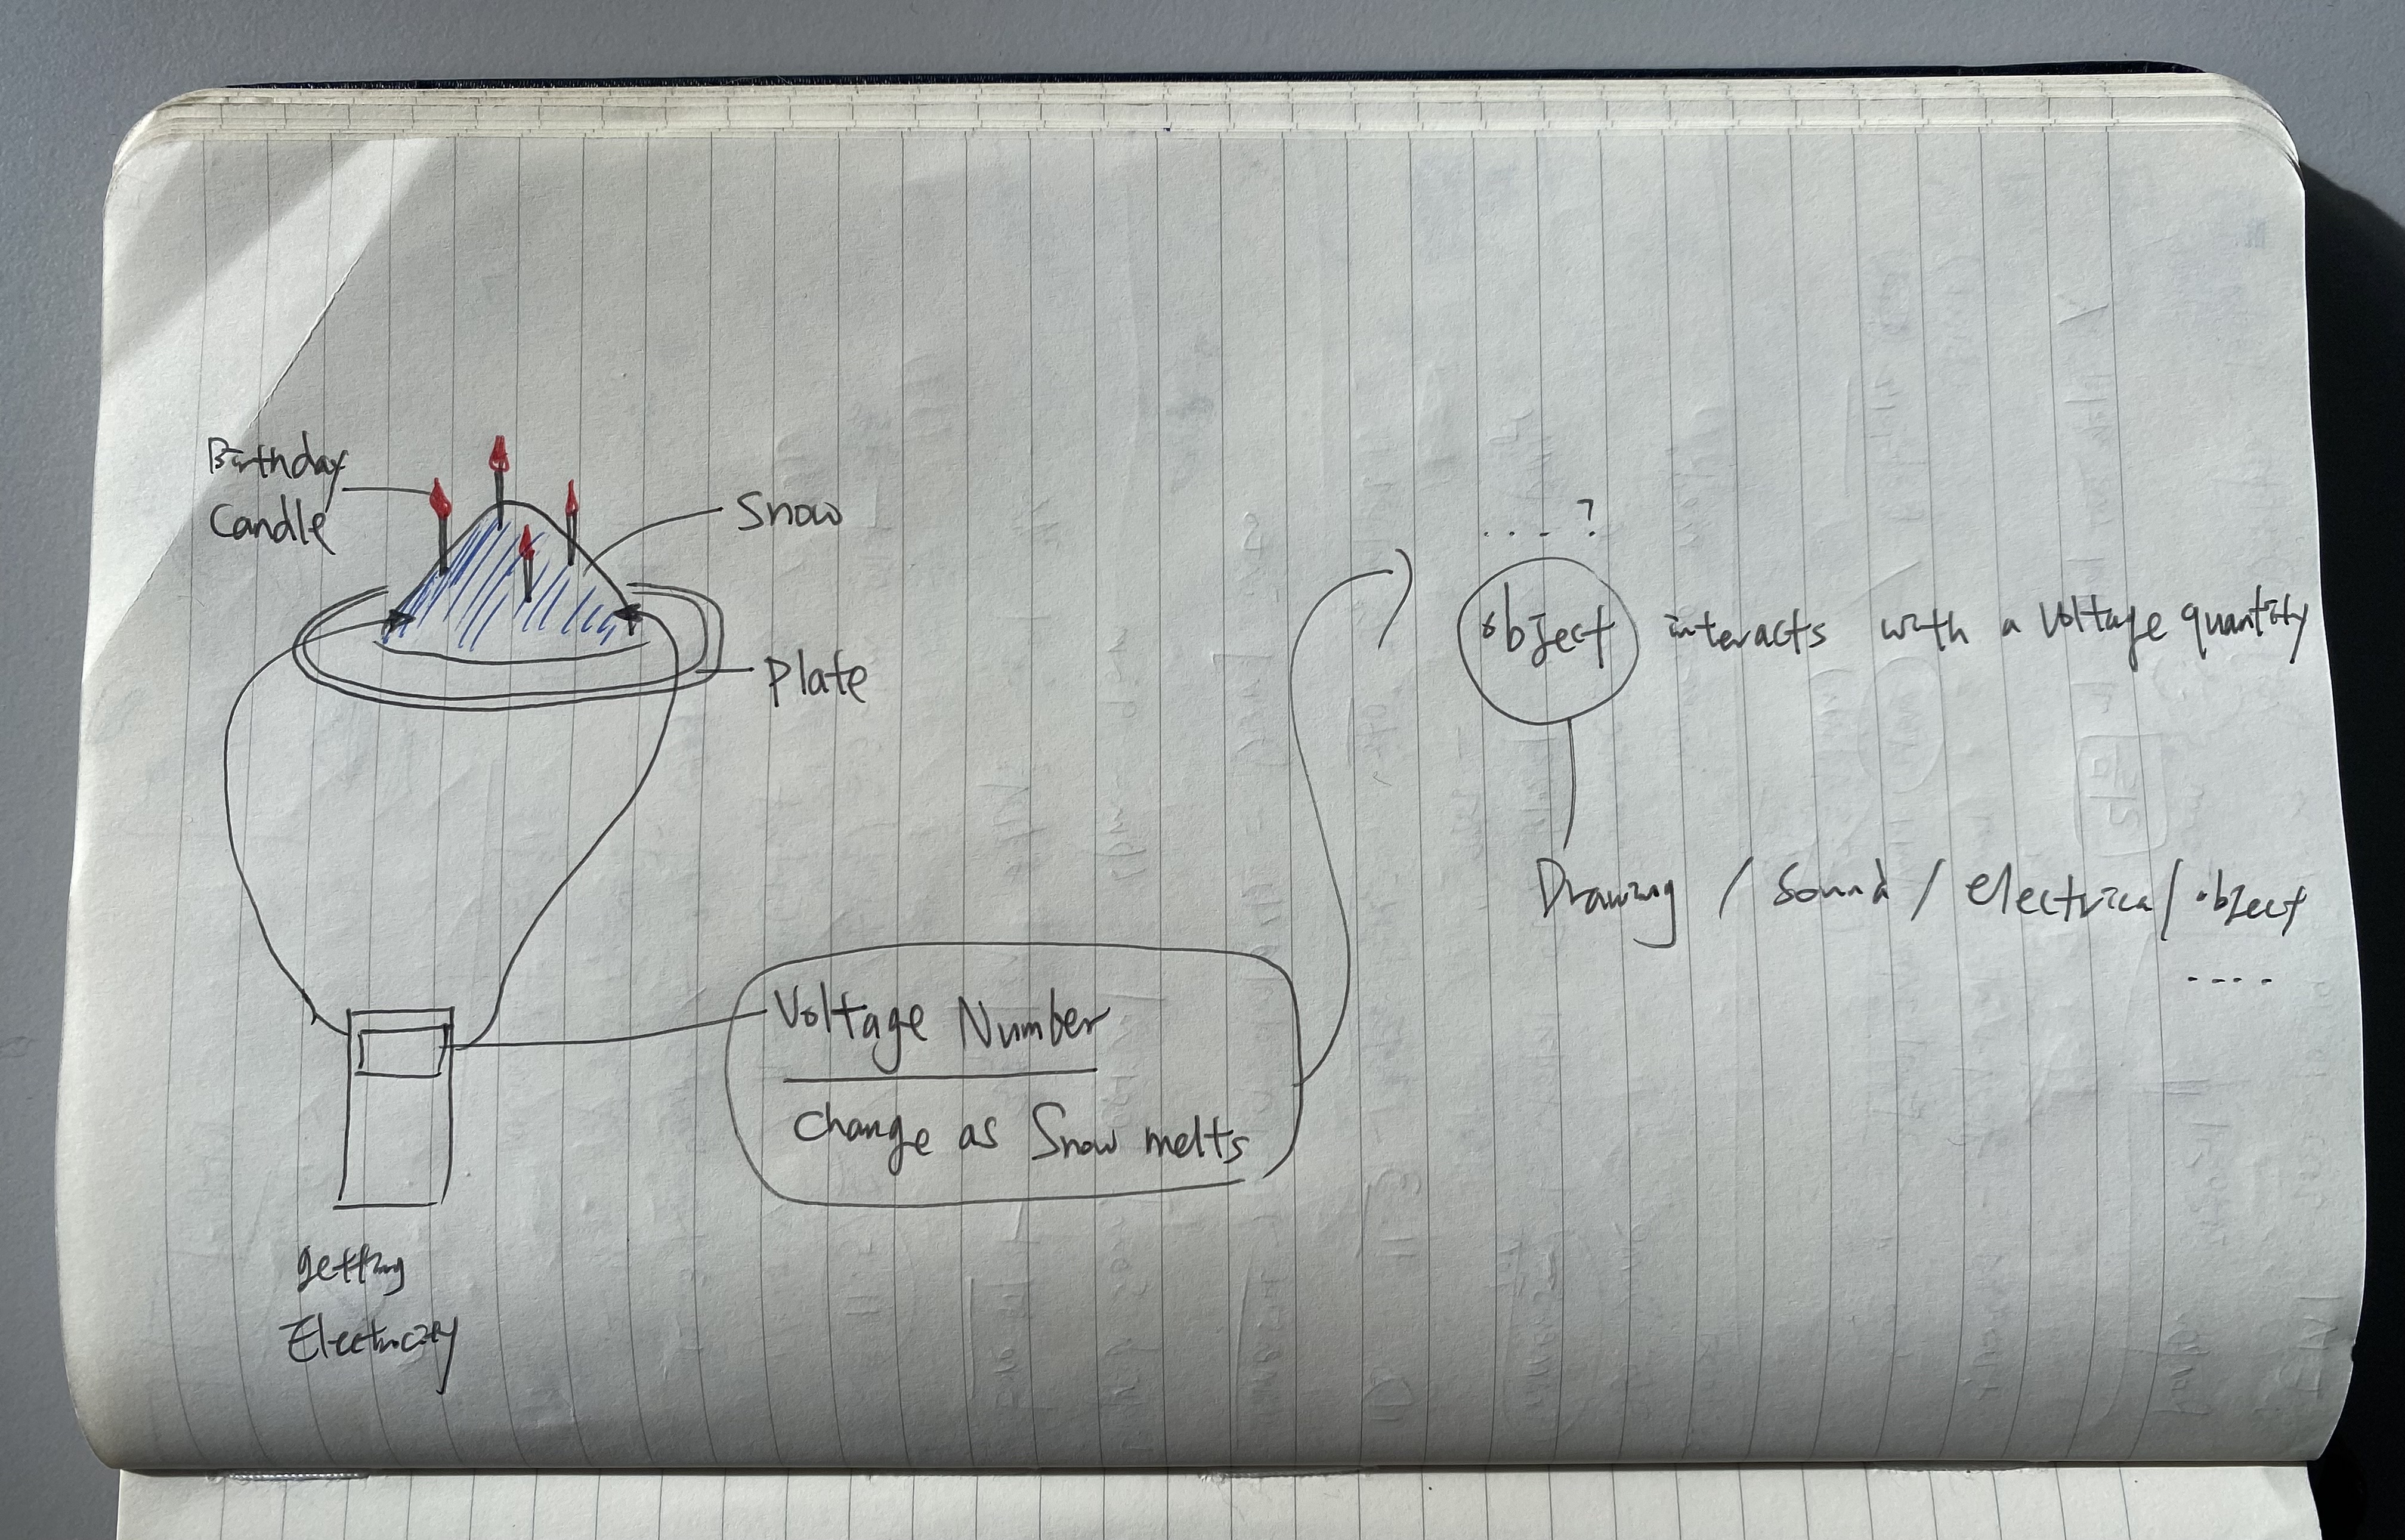 Birthday
Candle
Snow
Plate
getting
Electricity
Voltage Number
Change as Snow melts
.... ?
object interacts with a Voltage quantity
Drawing / Sound / electrical object
....